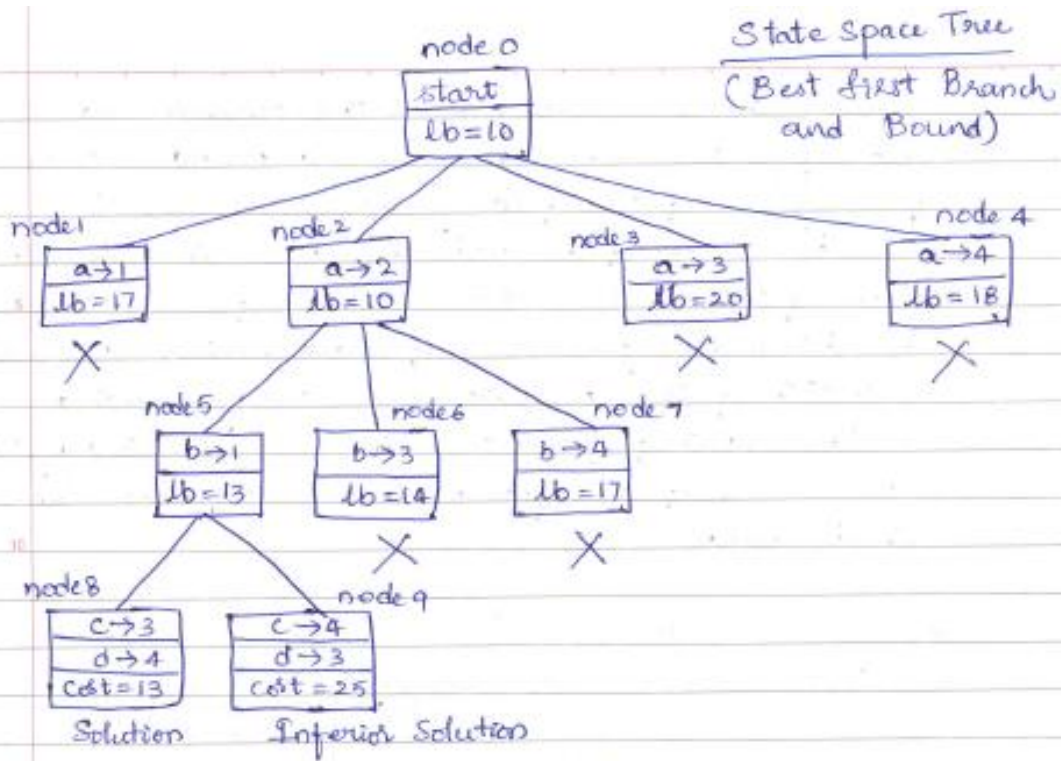 State Space Tree
(Best first Branch
and Bound)
node 0
start
lb=10
node1
a→1
lb=17
X
node2
a→2
lb=10
node 3
a→3
lb=20
X
node 4
a→4
lb=18
X
node5
b→1
lb=13
node6
b→3
lb=14
X
node 7
b→4
lb=17
X
10
node8
c→3
d→4
cost=13
Solution
node 9
c→4
d→3
cost=25
Inferior Solution